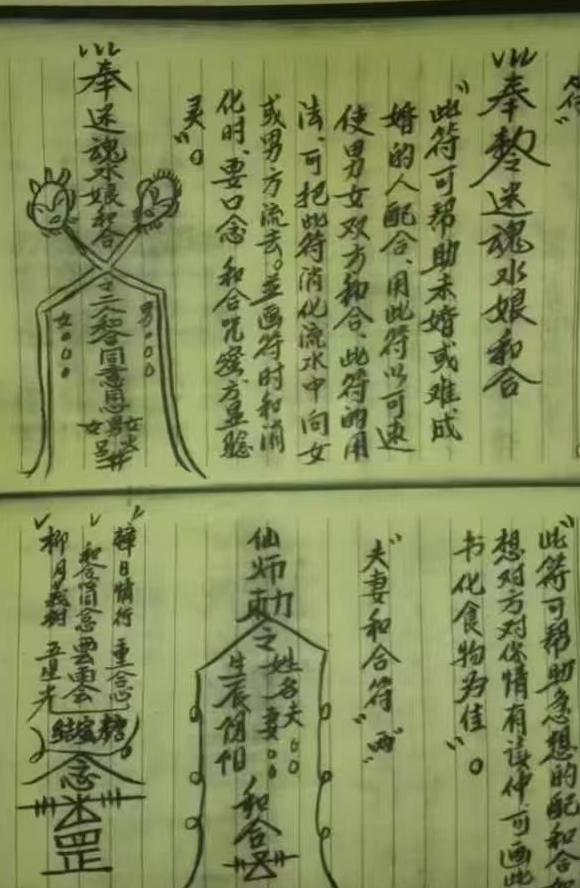 符"
奉敕迷魂水娘和合
"此符可帮助未婚或难成
婚的人配合、用此符以可速
使男女双方和合、此符的用
法、可把此符消化流水中向女
或男方流去。並画符时和消
化时、要口念 和合咒蜜、方显验
灵"。
奉迷魂水娘和合
二人和合同意思
男○○○
女○○○
"此符可帮助急想的配和合
想对方对你情有
可画此
书化食物为佳"。
夫妻和合符"
仙师助令
姓名夫○○
妻○○
生辰
和合
日情行 重合心
和合
雲雨会
柳月 五星光
结蜜糖
念
罡